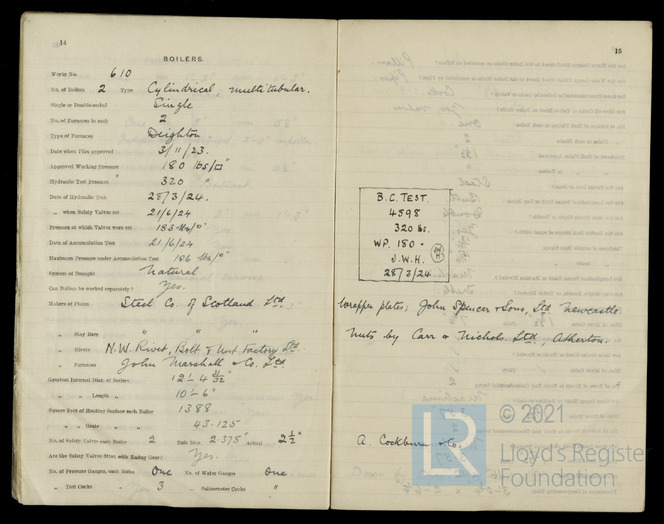 14
BOILERS.
Works No. 610
No. of Boilers 2 Type Cylindrical, multitubular.
Single or Double-ended Single
No. of Furnaces in each 2
Type of Furnaces Deighton
Date when Plan approved 3/11/23.
Approved Working Pressure 180 lbs/□"
Hydraulic Test Pressure 320 "
Date of Hydraulic Test 28/3/24.
" when Safety Valves set 21/6/24
Pressure at which Valves were set 183 lbs/□"
Date of Accumulation Test 21/6/24
Maximum Pressure under Accumulation Test 186 lbs/□"
System of Draught Natural
Can Boilers be worked separately? Yes.
Makers of Plates Steel Co. of Scotland Ltd.
" Stay Bars " " "
" Rivets N.W. Rivet, Bolt & Nut Factory Ltd.
" Furnaces John Marshall & Co. Ltd
Greatest Internal Diam. of Boilers 12'-4 31/32"
" " Length " 10'-6"
Square Feet of Heating Surface each Boiler 1388
" " Grate " " 43.125
No. of Safety Valves each Boiler 2 Rule Diam. 2.375" Actual 2½"
Are the Safety Valves fitted with Easing Gear? Yes.
No. of Pressure Gauges, each Boiler One No. of Water Gauges One.
" Test Cocks " 3 " Salinometer Cocks "
15
B.C. TEST.
4598
320 lbs.
WP. 180 "
J.W.H.
28/3/24
Wrapper plates; John Spencer & Sons, Ltd Newcastle.
Nuts by Carr & Nichols Ltd, Atherton.
A. Cockburn & Co.
LR © 2021
Lloyd's Register
Foundation